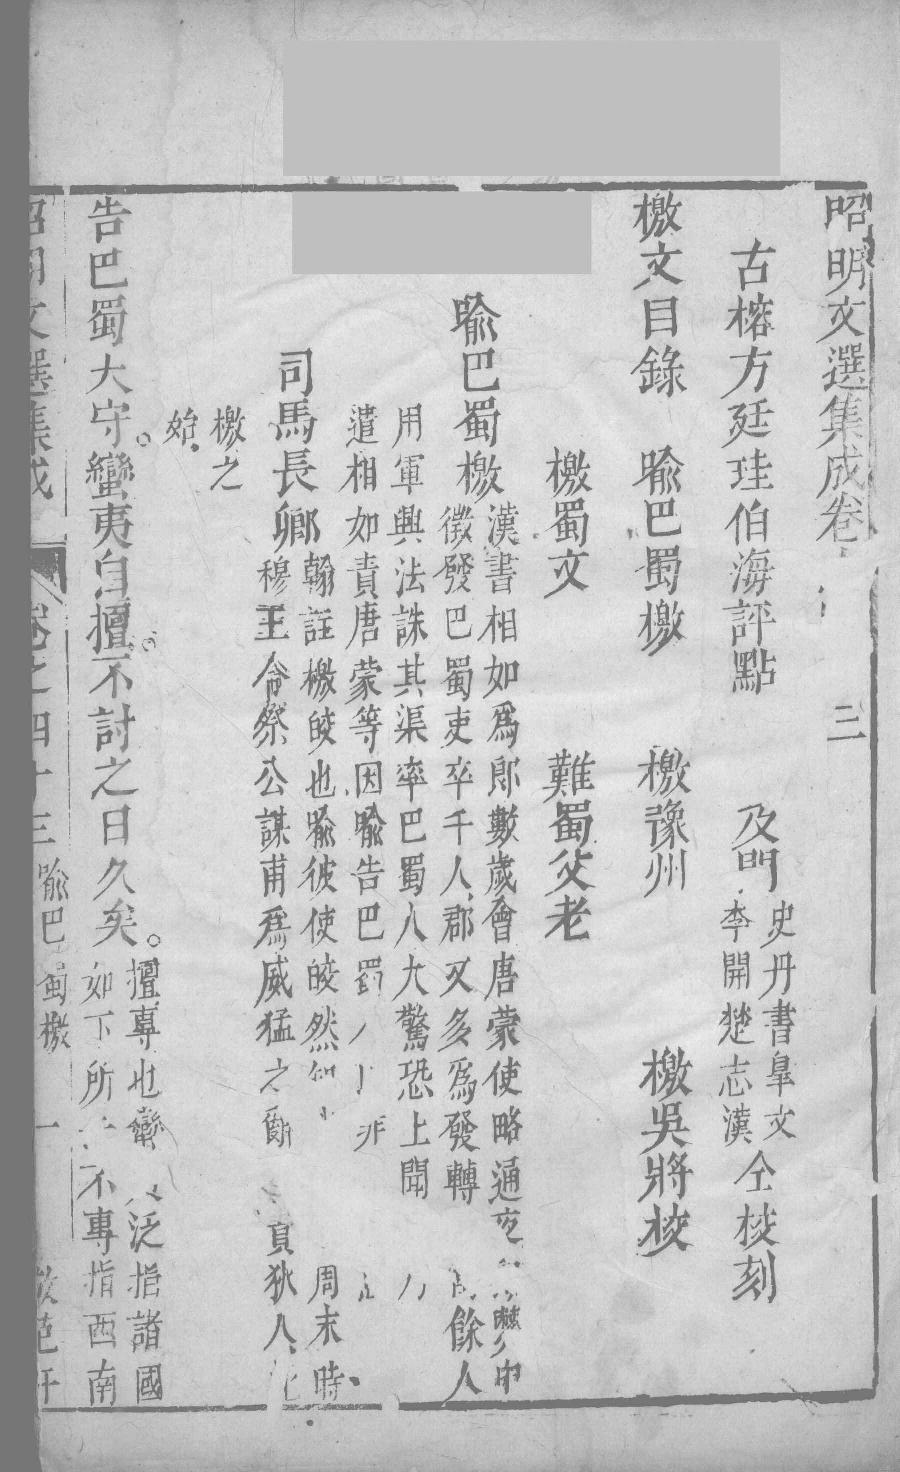 昭明文選集成卷 三
古榕方廷珪伯海評點 及門 史丹書臯文 李開楚志漢 仝校刻
檄文目錄 喻巴蜀檄 檄豫州 檄吳將校
檄蜀文 難蜀父老
喻巴蜀檄
漢書相如爲郎數歲會唐蒙使略通夜 中
徵發巴蜀吏卒千人郡又多爲發轉 餘人
用軍興法誅其渠率巴蜀人大驚恐上聞
遣相如責唐蒙等因喻告巴蜀 非
司馬長卿
翰註檄皎也喻彼使皎然知 周末時
穆王令祭公謀父爲威猛之 狄人
檄之
始
告巴蜀大守。蠻夷自擅。不討之日久矣。
擅專也蠻 泛指諸國
如下所 不專指西南
昭明文選集成 卷之四十三 喻巴蜀檄 一